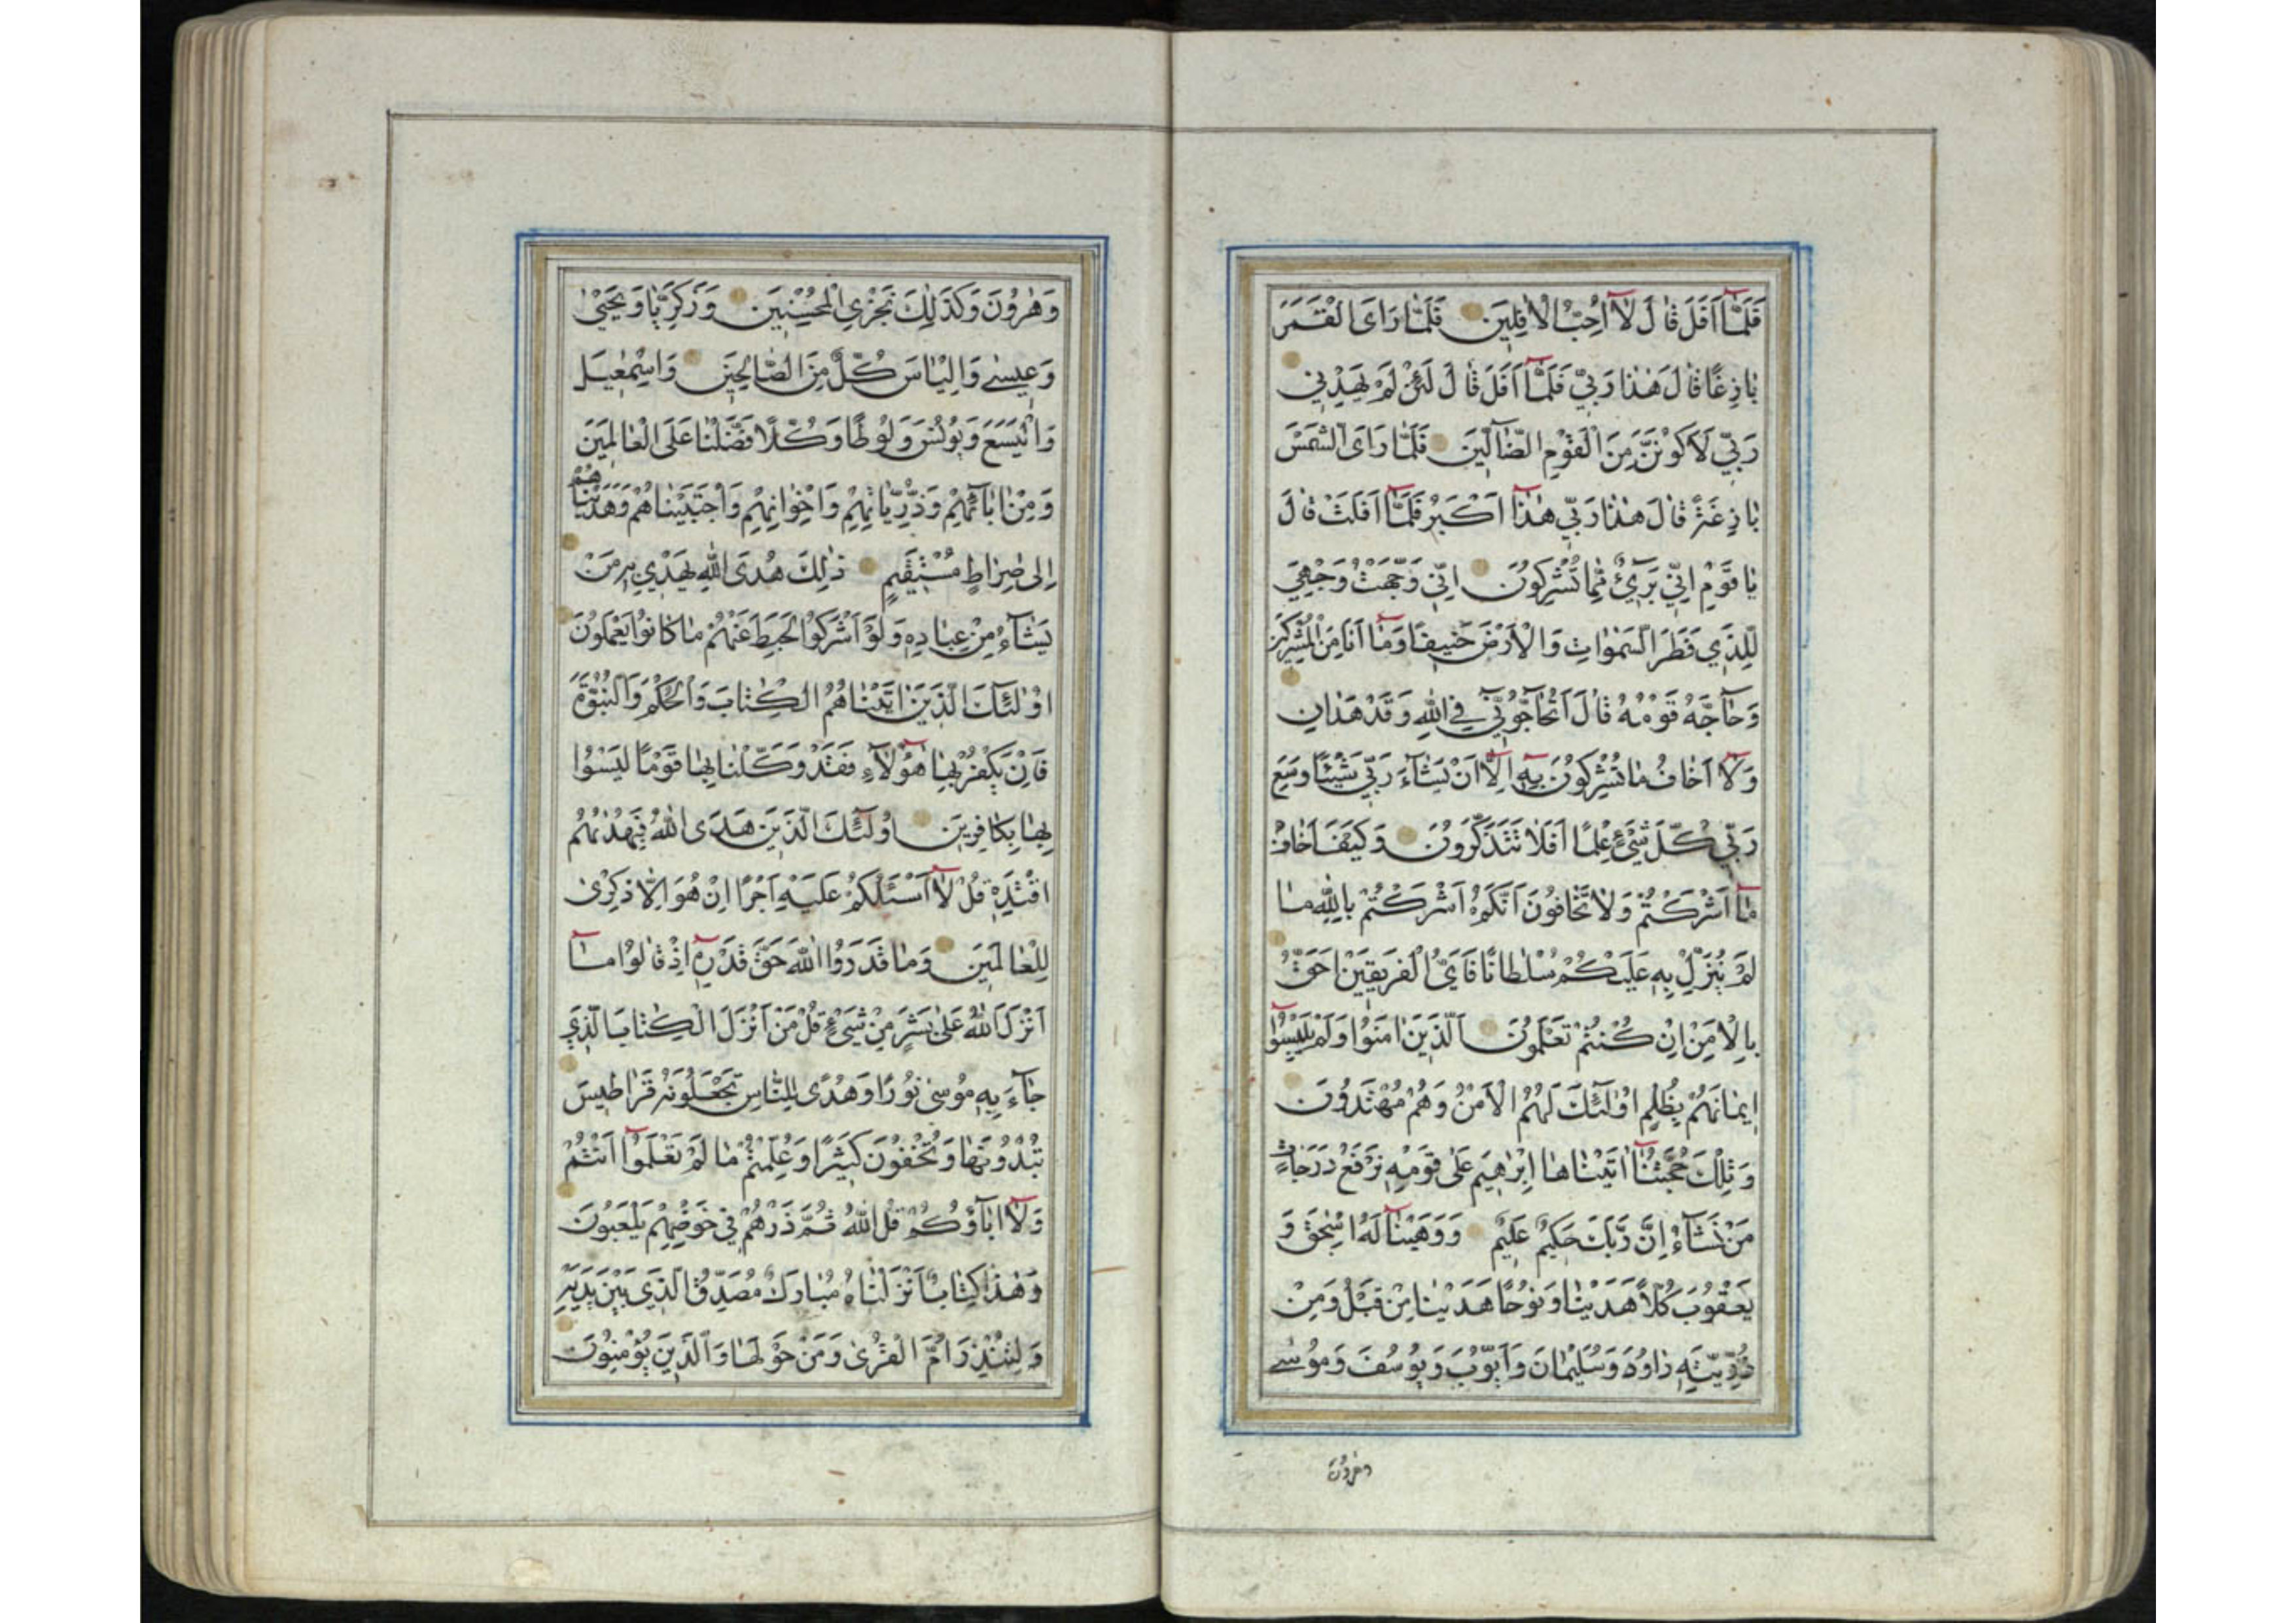 فَلَمَّآ اَفَلَ قٰالَ لٰآ اُحِبُّ الْاٰفِلِينَ فَلَمّٰا رَاَى الْقَمَرَ
بٰازِغًا قٰالَ هٰذٰا رَبّٖي فَلَمَّآ اَفَلَ قٰالَ لَئِنْ لَمْ يَهْدِنٖي
رَبّٖي لَاَكُونَنَّ مِنَ الْقَوْمِ الضّٰٓالّٖينَ فَلَمّٰا رَاَى الشَّمْسَ
بٰازِغَةً قٰالَ هٰذٰا رَبّٖي هٰذٰٓا اَكْبَرُ فَلَمّٰٓا اَفَلَتْ قٰالَ
يٰا قَوْمِ اِنّٖي بَرٖيٓءٌ مِمّٰا تُشْرِكُونَ اِنّٖي وَجَّهْتُ وَجْهِيَ
لِلَّذٖي فَطَرَ السَّمٰوٰاتِ وَالْاَرْضَ حَنٖيفًا وَمٰٓا اَنَا مِنَ الْمُشْرِكٖينَ
وَحٰٓاجَّهُ قَوْمُهُ قٰالَ اَتُحٰٓاجُّٓونّٖي فِي اللّٰهِ وَقَدْ هَدٰانِ
وَلٰٓا اَخٰافُ مٰا تُشْرِكُونَ بِهٖٓ اِلّٰٓا اَنْ يَشٰٓاءَ رَبّٖي شَيْئًا وَسِعَ
رَبّٖي كُلَّ شَيْءٍ عِلْمًا اَفَلٰا تَتَذَكَّرُونَ وَكَيْفَ اَخٰافُ
مٰٓا اَشْرَكْتُمْ وَلٰا تَخٰافُونَ اَنَّكُمْ اَشْرَكْتُمْ بِاللّٰهِ مٰا
لَمْ يُنَزِّلْ بِهٖ عَلَيْكُمْ سُلْطٰانًا فَاَيُّ الْفَرٖيقَيْنِ اَحَقُّ
بِالْاَمْنِ اِنْ كُنْتُمْ تَعْلَمُونَ اَلَّذٖينَ اٰمَنُوا وَلَمْ يَلْبِسُوٓا
اٖيمٰانَهُمْ بِظُلْمٍ اُولٰٓئِكَ لَهُمُ الْاَمْنُ وَهُمْ مُهْتَدُونَ
وَتِلْكَ حُجَّتُنٰٓا اٰتَيْنٰاهٰا اِبْرٰهٖيمَ عَلٰى قَوْمِهٖ نَرْفَعُ دَرَجٰاتٍ
مَنْ نَشٰٓاءُ اِنَّ رَبَّكَ حَكٖيمٌ عَلٖيمٌ وَوَهَبْنٰا لَهُٓ اِسْحٰقَ وَ
يَعْقُوبَ كُلًّا هَدَيْنٰا وَنُوحًا هَدَيْنٰا مِنْ قَبْلُ وَمِنْ
ذُرِّيَّتِهٖ دٰاوُدَ وَسُلَيْمٰانَ وَاَيُّوبَ وَيُوسُفَ وَمُوسٰى
وهرون
وَهٰرُونَ وَكَذٰلِكَ نَجْزِي الْمُحْسِنٖينَ وَزَكَرِيّٰا وَيَحْيٰى
وَعٖيسٰى وَاِلْيٰاسَ كُلٌّ مِنَ الصّٰالِحٖينَ وَاِسْمٰعٖيلَ
وَالْيَسَعَ وَيُونُسَ وَلُوطًا وَكُلًّا فَضَّلْنٰا عَلَى الْعٰالَمٖينَ
وَمِنْ اٰبٰٓائِهِمْ وَذُرِّيّٰاتِهِمْ وَاِخْوٰانِهِمْ وَاجْتَبَيْنٰاهُمْ وَهَدَيْنٰاهُمْ
اِلٰى صِرٰاطٍ مُسْتَقٖيمٍ ذٰلِكَ هُدَى اللّٰهِ يَهْدٖي بِهٖ مَنْ
يَشٰٓاءُ مِنْ عِبٰادِهٖ وَلَوْ اَشْرَكُوا لَحَبِطَ عَنْهُمْ مٰا كٰانُوا يَعْمَلُونَ
اُولٰٓئِكَ الَّذٖينَ اٰتَيْنٰاهُمُ الْكِتٰابَ وَالْحُكْمَ وَالنُّبُوَّةَ
فَاِنْ يَكْفُرْ بِهٰا هٰٓؤُلٰٓاءِ فَقَدْ وَكَّلْنٰا بِهٰا قَوْمًا لَيْسُوا
بِهٰا بِكٰافِرٖينَ اُولٰٓئِكَ الَّذٖينَ هَدَى اللّٰهُ فَبِهُدٰىهُمُ
اقْتَدِهْ قُلْ لٰٓا اَسْئَلُكُمْ عَلَيْهِ اَجْرًا اِنْ هُوَ اِلّٰا ذِكْرٰى
لِلْعٰالَمٖينَ وَمٰا قَدَرُوا اللّٰهَ حَقَّ قَدْرِهٖٓ اِذْ قٰالُوا مٰٓا
اَنْزَلَ اللّٰهُ عَلٰى بَشَرٍ مِنْ شَيْءٍ قُلْ مَنْ اَنْزَلَ الْكِتٰابَ الَّذٖي
جٰٓاءَ بِهٖ مُوسٰى نُورًا وَهُدًى لِلنّٰاسِ تَجْعَلُونَهُ قَرٰاطٖيسَ
تُبْدُونَهٰا وَتُخْفُونَ كَثٖيرًا وَعُلِّمْتُمْ مٰا لَمْ تَعْلَمُوٓا اَنْتُمْ
وَلٰٓا اٰبٰٓاؤُكُمْ قُلِ اللّٰهُ ثُمَّ ذَرْهُمْ فٖي خَوْضِهِمْ يَلْعَبُونَ
وَهٰذٰا كِتٰابٌ اَنْزَلْنٰاهُ مُبٰارَكٌ مُصَدِّقُ الَّذٖي بَيْنَ يَدَيْهِ
وَلِتُنْذِرَ اُمَّ الْقُرٰى وَمَنْ حَوْلَهٰا وَالَّذٖينَ يُؤْمِنُونَ